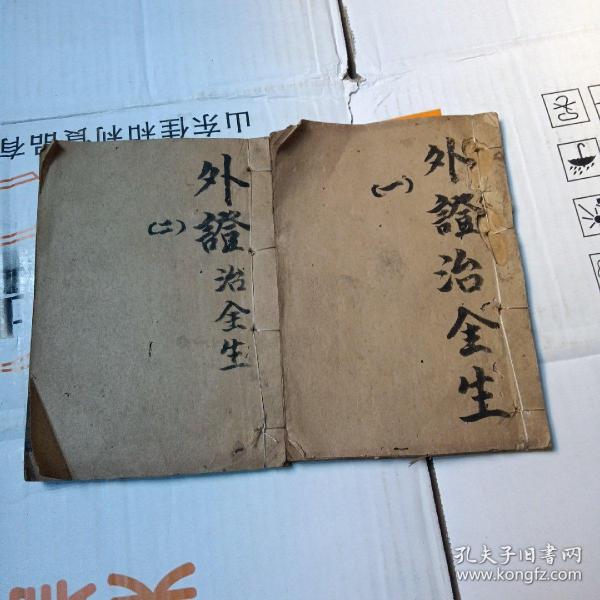 山东佳和利食品有
外證治全生
(一)
外證治全生
(二)
孔夫子旧书网
www.kongfz.com